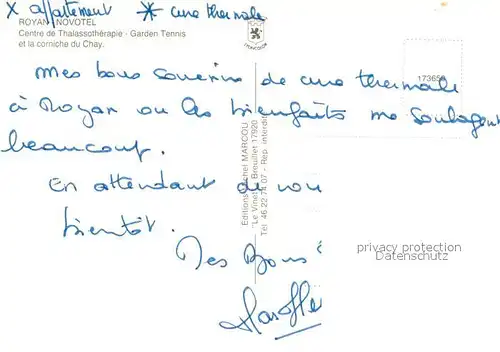 X appartement * cure thermale
ROYAN NOVOTEL
Centre de Thalassothérapie - Garden Tennis
et la corniche du Chay.
173659
Mes bons souvenirs de cure thermale
à Royan ou les bienfaits me soulagent
beaucoup.
En attendant de vous
bientôt.
Des Bons
Editions Michel MARCOU
"Le Vinet" Breuillet 17920
Tél 46.22.74.07 - Rép. interdite
privacy protection
Datenschutz